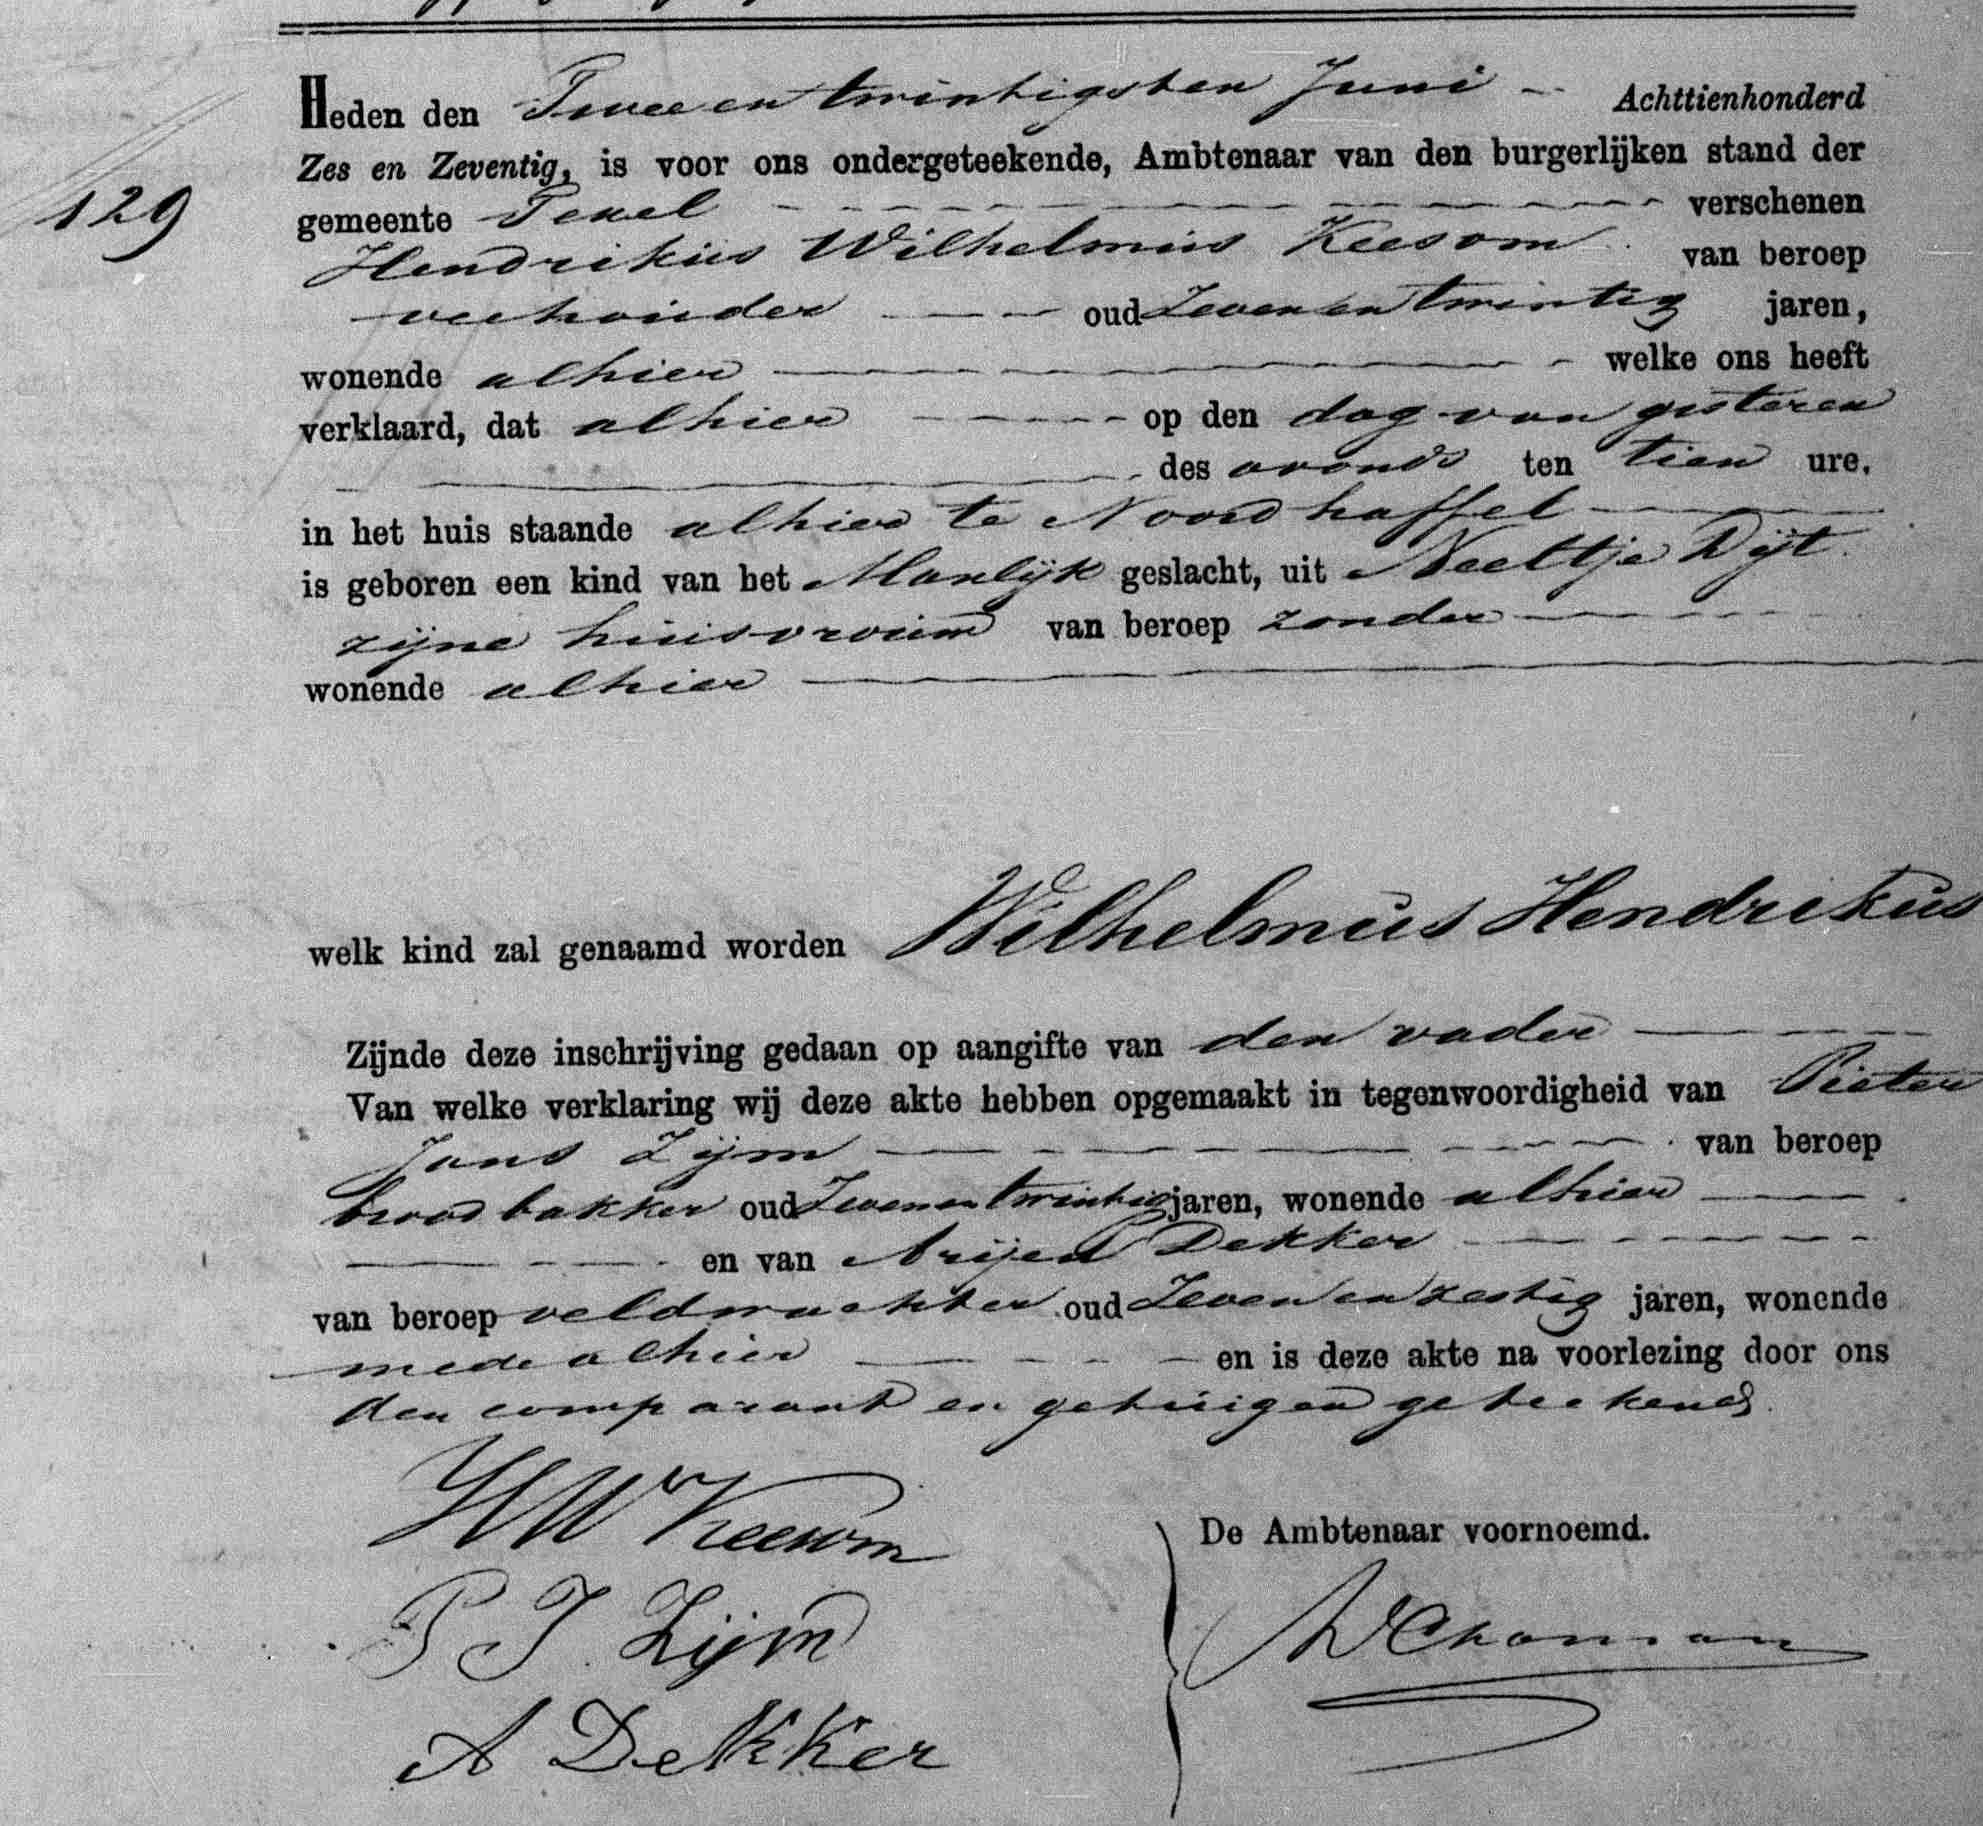 Heden den Twee en twintigsten Juni Achttienhonderd
Zes en Zeventig, is voor ons ondergeteekende, Ambtenaar van den burgerlijken stand der
129
gemeente Texel verschenen
Hendrikus Wilhelmus Keesom van beroep
veehouder oud Zeven en twintig jaren,
wonende alhier welke ons heeft
verklaard, dat alhier op den dag van gisteren
des avonds ten tien ure,
in het huis staande alhier te Noordhaffel
is geboren een kind van het Manlijk geslacht, uit Neeltje Dijt
zijne huisvrouw van beroep zonder
wonende alhier
welk kind zal genaamd worden Wilhelmus Hendrikus
Zijnde deze inschrijving gedaan op aangifte van den vader
Van welke verklaring wij deze akte hebben opgemaakt in tegenwoordigheid van Pieter
Jans Zijm van beroep
broodbakker oud Zeven en twintig jaren, wonende alhier
en van Arijen Dekker
van beroep veldwachter oud Zeven en zestig jaren, wonende
mede alhier en is deze akte na voorlezing door ons
den comparant en getuigen geteekend.
HW Keesom
De Ambtenaar voornoemd.
P J Zijm
A Dekker